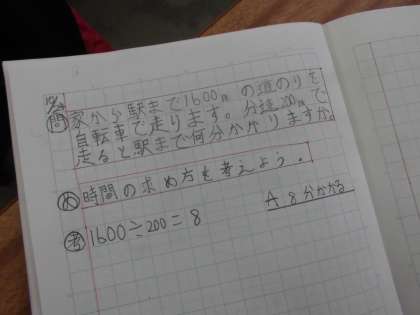 問 家から駅まで1600mの道のりを
自転車で走ります。分速200mで
走ると駅まで何分かかりますか。
め 時間の求め方を考えよう。
考 1600÷200=8
A 8分かかる